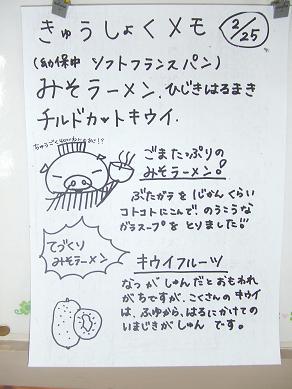 きゅうしょくメモ 2/25
(幼保中 ソフトフランスパン)
みそラーメン、ひじきはるまき
チルドカットキウイ.
ごまたっぷりの
みそラーメン!
ぶたガラを1じかんくらい
コトコトにこんで、のうこうな
ガラスープを とりました!!!
てづくり
みそラーメン
キウイフルーツ
なつがしゅんだとおもわれ
がちですが、こくさんのキウイ
は、ふゆから、はるにかけての
いまじきがしゅんです。